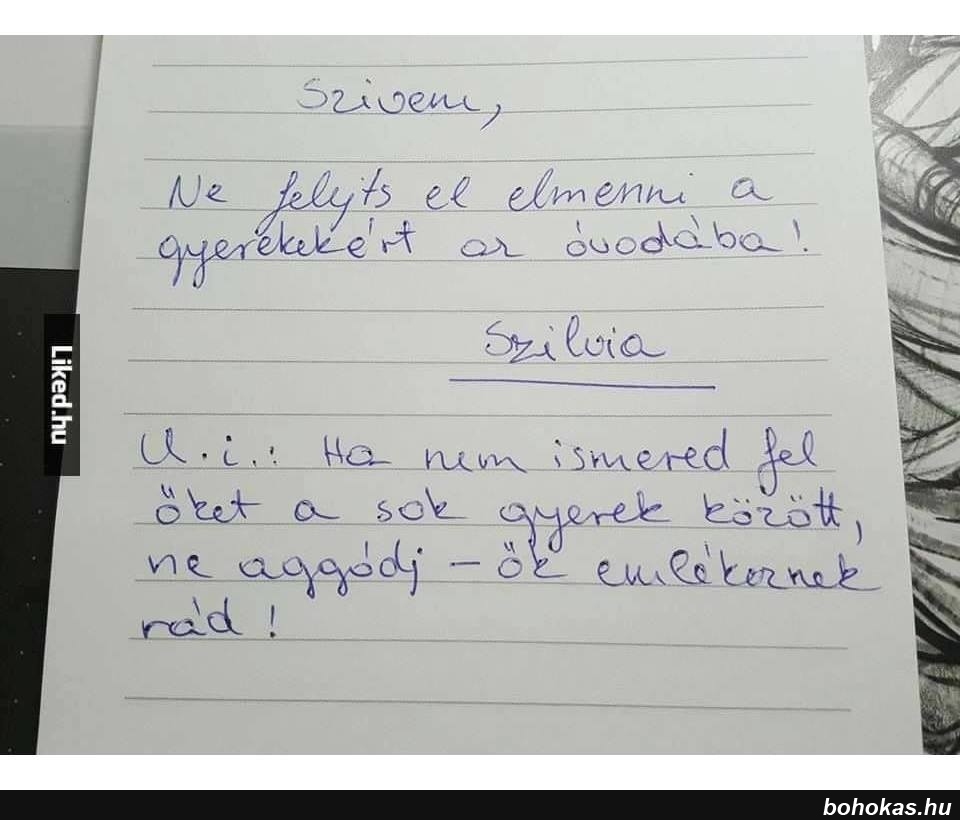 Szivem,
Ne felyts el elmenni a
gyerekekért az óvodába!
Szilvia
U.i.: Ha nem ismered fel
őket a sok gyerek között,
ne aggódj – ők emlékeznek
rád!
Liked.hu
bohokas.hu